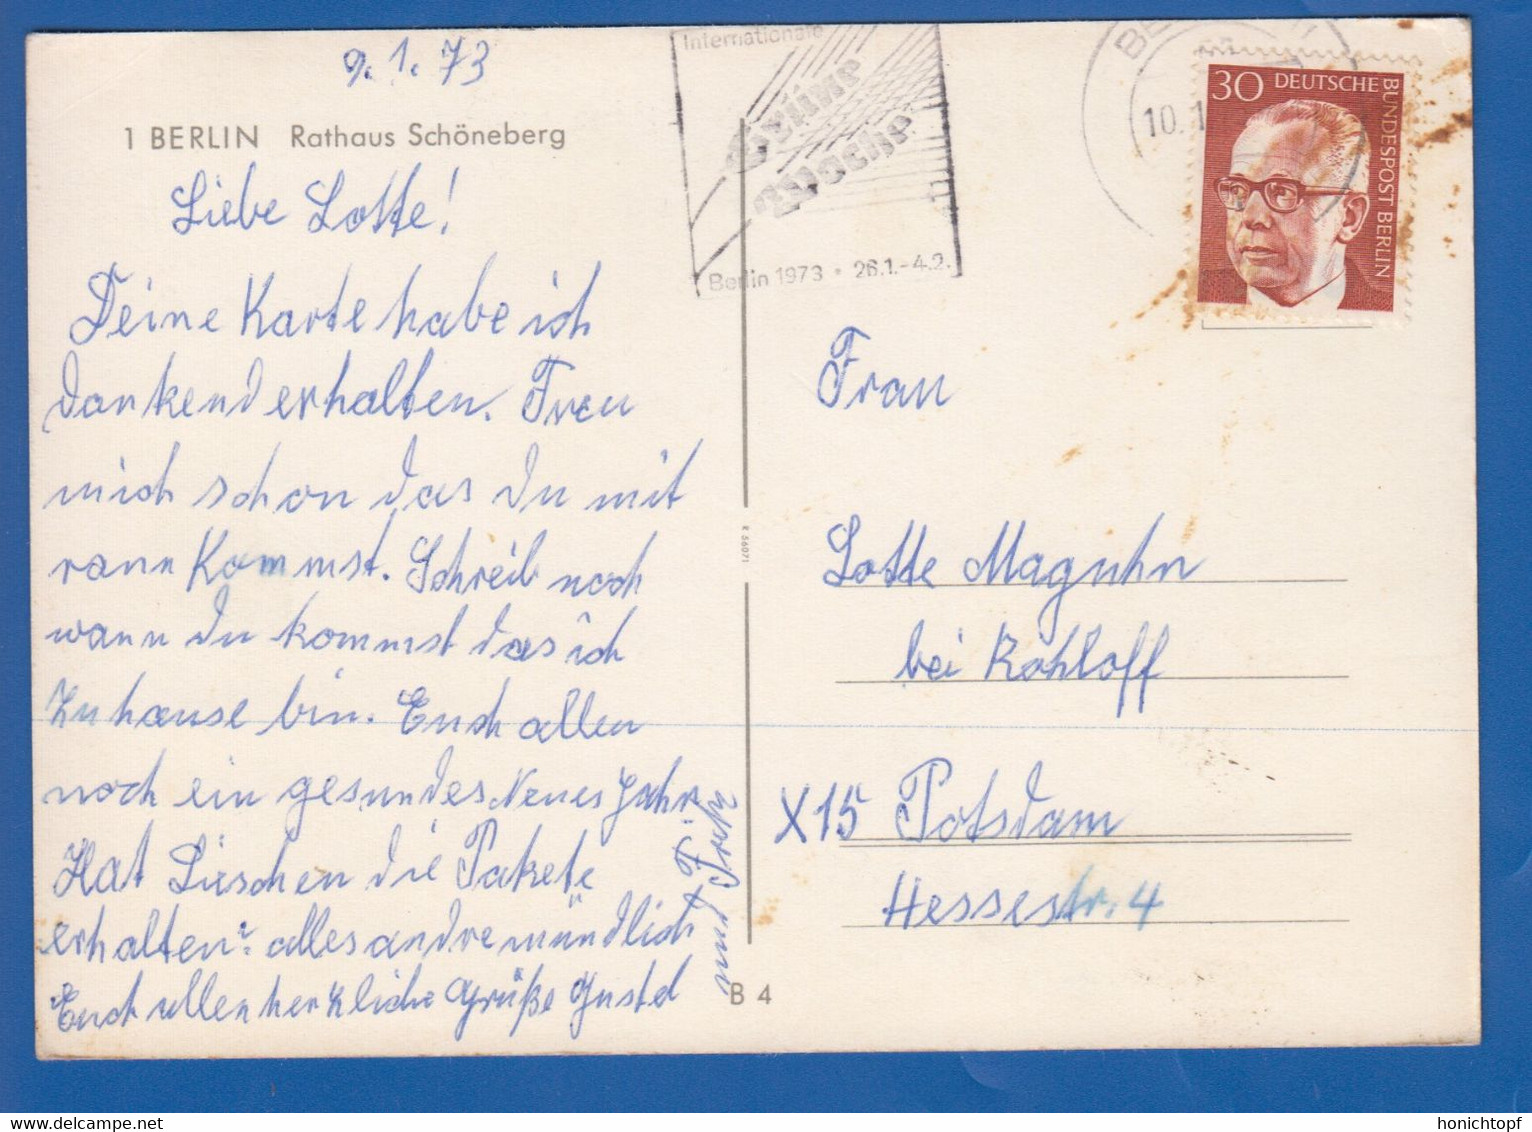 9.1.73
1 BERLIN Rathaus Schöneberg
Liebe Lotte!
Deine Karte habe ich
dankend erhalten. Freu
mich schon das du mit
rann Kommst. Schreib noch
wann du kommst das ich
Zuhause bin. Euch allen
noch ein gesundes Neues Jahr.
Hat Lieschen die Pakete
erhalten? alles andre mündlich
Euch allen herzliche Grüße Gustel
und Fritz
B 4
K 56071
Internationale
Grüne
Woche
Berlin 1973 • 26.1.-4.2.
10.1
30 DEUTSCHE
BUNDESPOST BERLIN
Frau
Lotte Maguhn
bei Rohloff
X15 Potsdam
Hessestr. 4
delcampe.net
honichtopf